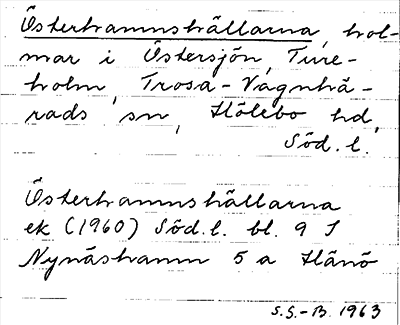 Österhamnshällarna, hol-
mar i Östersjön, Ture-
holm, Trosa-Vagnhä-
rads sn, Hölebo hd,
Söd. l.
Österhamnshällarna
ek (1960) Söd. l. bl. 9 I
Nynäshamn 5 a Hånö
S.S.-B. 1963